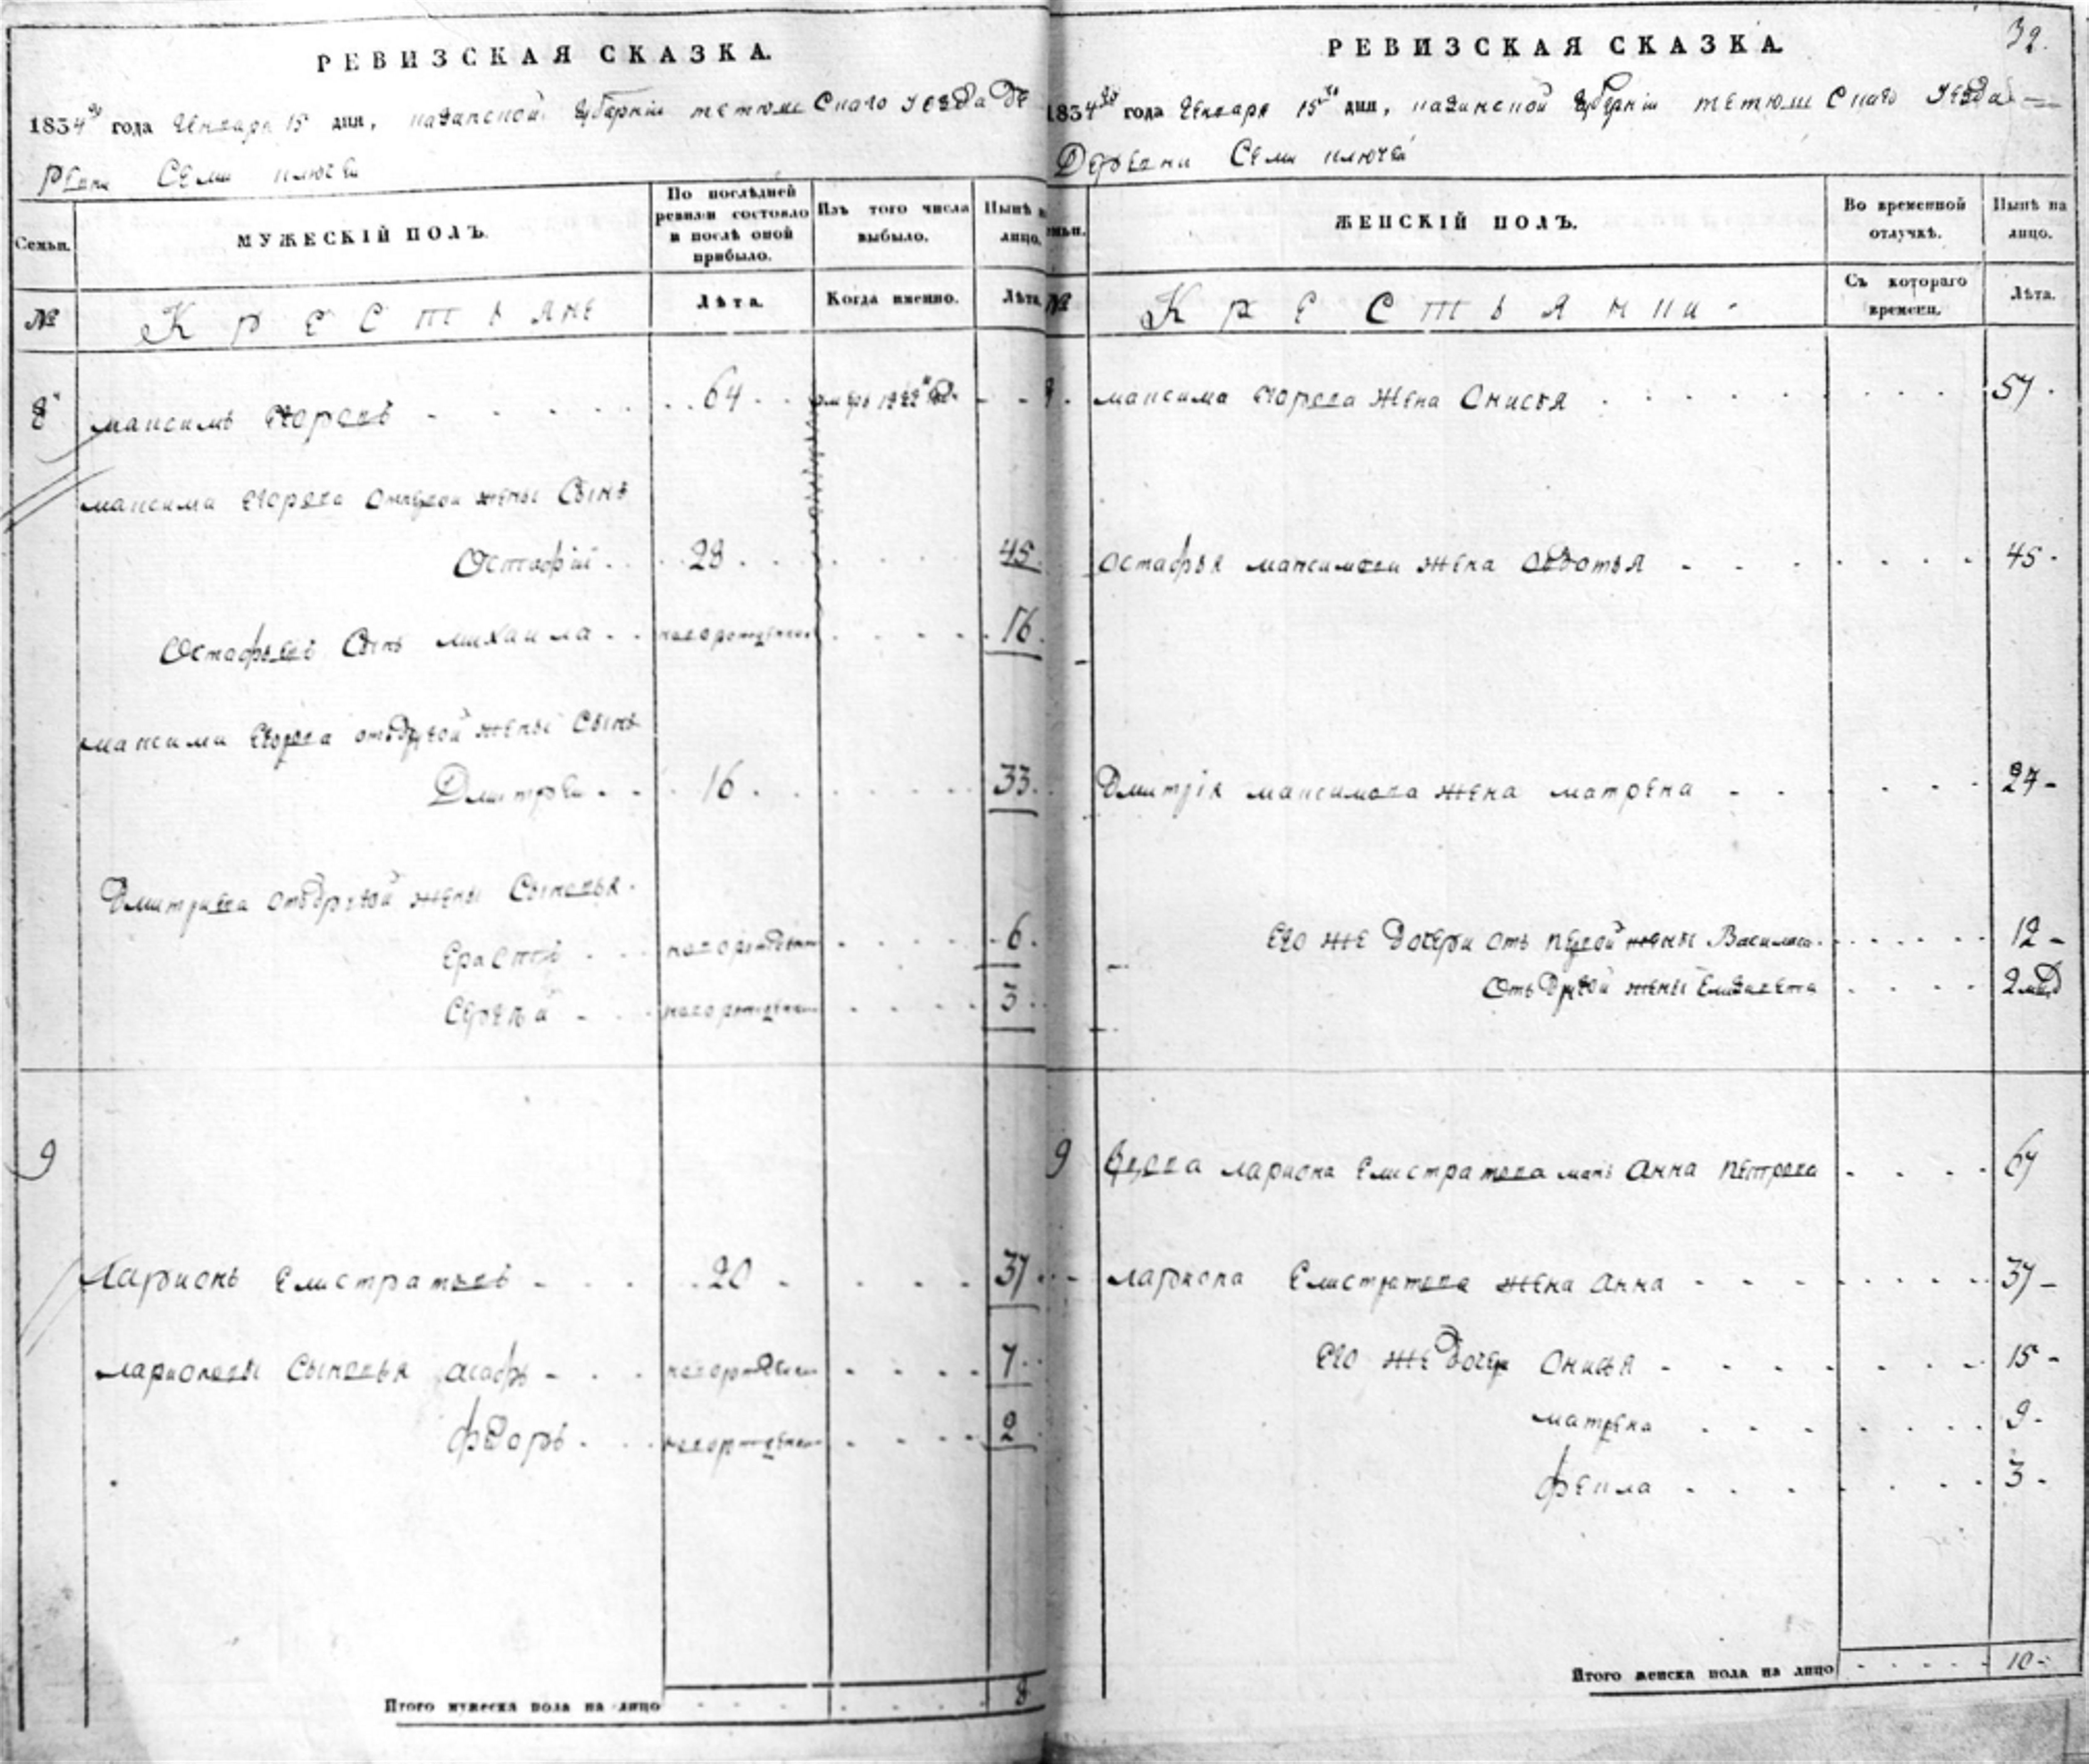 РЕВИЗСКАЯ СКАЗКА.
1834го года Генваря 15 дня, казанской губернiи тетюшскаго уезда де
ревни Семи ключей
Семьи.
МУЖЕСКIЙ ПОЛЪ.
По послѣдней ревизiи состояло и послѣ оной прибыло.
Изъ того числа выбыло.
Нынѣ на лицо.
№
Крестьяне
Лѣта.
Когда именно.
Лѣта.
8
максимъ Егоровъ 64 умеръ
максима Егорова жены Сынъ
Остафiй 28 45
Остафьевъ Сынъ михаила 16
максима Егорова отъ другой жены Сынъ
Дмитрей 16 33
Дмитриева отъ другой жены Сыновья
Ерастъ 6
Сергей 3
9
Ларионъ Елистратовъ 20 37
ларионовы Сыновья асафъ 7
федоръ 2
Итого мужеска пола на лицо 8
32.
РЕВИЗСКАЯ СКАЗКА.
1834го года Генваря 15го дня, казанской губернiи тетюшскаго уезда
Деревни Семи ключей
Семьи.
ЖЕНСКIЙ ПОЛЪ.
Во временной отлучкѣ.
Нынѣ на лицо.
№
Крестьянки
Съ котораго времени.
Лѣта.
максима Егорова жена Онисья 57
остафья максимова жена овдотья 45
Дмитрiя максимова жена матрена 27
Его же дочери отъ первой жены Василиса 12
отъ другой жены Елизавета
9 ларионa Елистратова мать анна петрова 67
лариона Елистратова жена анна 37
Его же дочер онисья 15
матрена 9
фекла 3
Итого женска пола на лицо 10